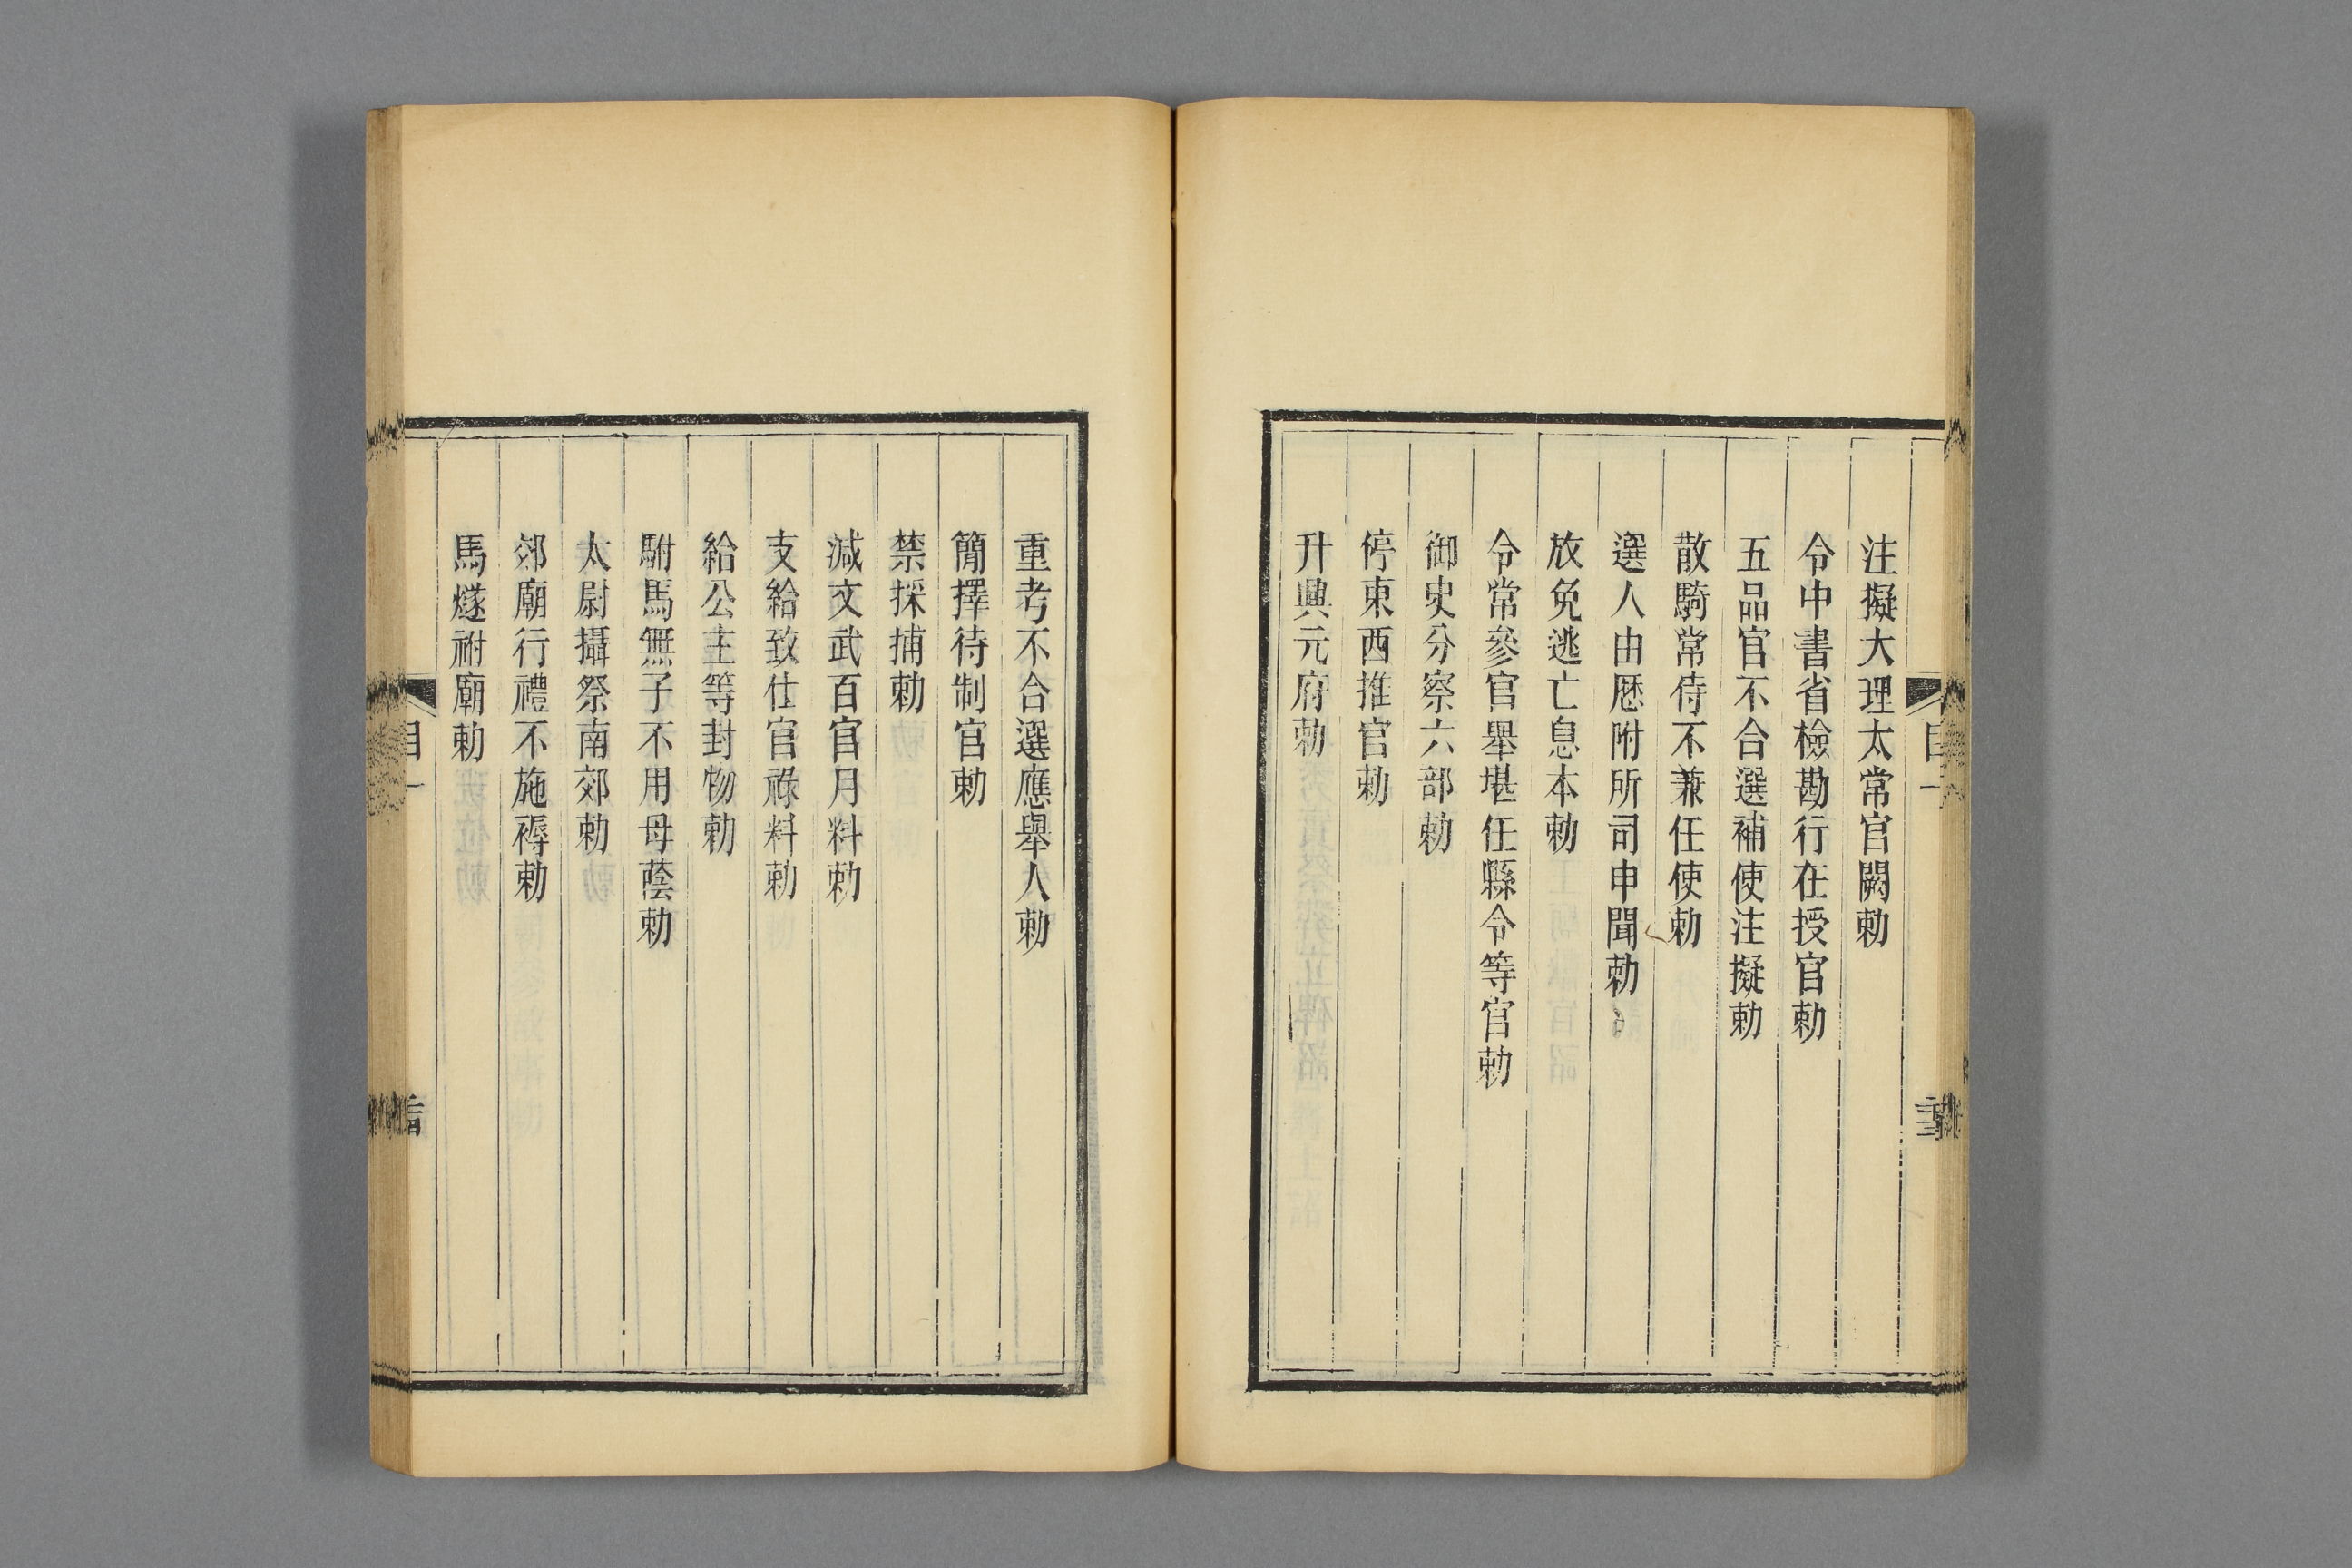 注擬大理太常官闕勅
令中書省檢勘行在授官勅
五品官不合選補使注擬勅
散騎常侍不兼任使勅
選人由厯附所司申聞勅
放免逃亡息本勅
令常參官舉堪任縣令等官勅
御史分察六部勅
停東西推官勅
升興元府勅
重考不合選應舉人勅
簡擇待制官勅
禁採捕勅
減文武百官月料勅
支給致仕官祿料勅
給公主等封物勅
駙馬無子不用母蔭勅
太尉攝祭南郊勅
郊廟行禮不施褥勅
馬燧祔廟勅
目一